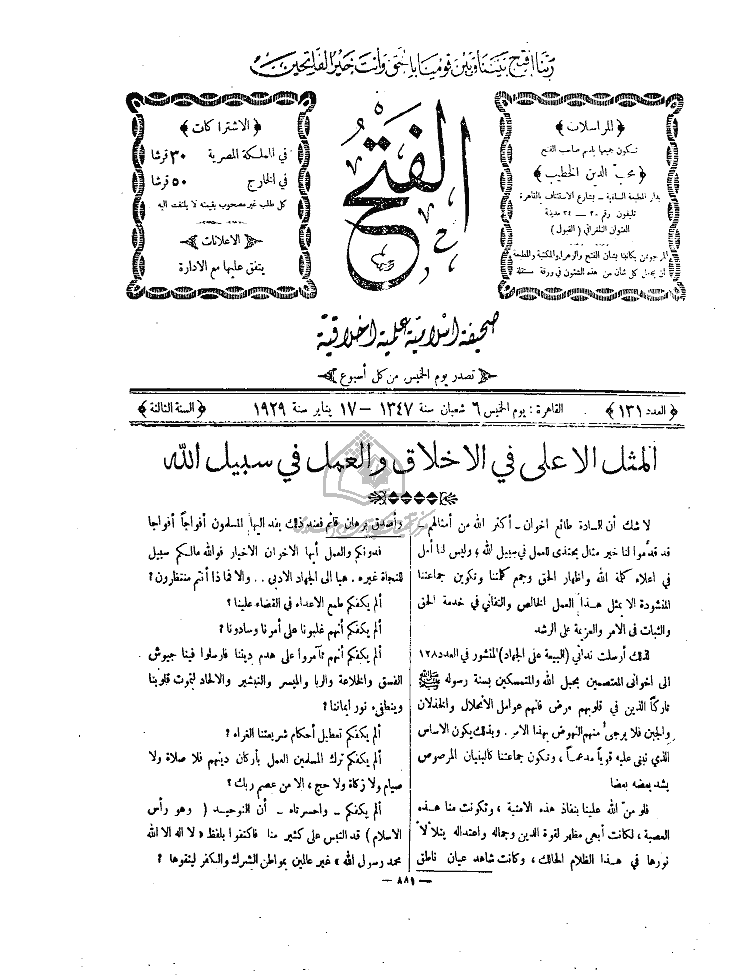 ربنا افتح بيننا وبين قومنا بالحق وأنت خير الفاتحين
﴿ المراسلات ﴾
تكون جميعها باسم صاحب الفتح
﴿ محب الدين الخطيب ﴾
بدار المطبعة السلفية – بشارع الاستئناف بالقاهرة
تليفون رقم ٢٠ – ٢٤ مدينة
العنوان التلغرافي (الفتول)
المرجو ممن يكاتبنا بشأن الفتح والزهراء والمكتبة والمطبعة
أن يجعل كل شأن من هذه الشئون في ورقة مستقلة
الفتح
﴿ الاشتراكات ﴾
في المملكة المصرية ٣٠ قرشا
في الخارج ٥٠ قرشا
كل طلب غير مصحوب بقيمته لا يلتفت اليه
﴿ الاعلانات ﴾
يتفق عليها مع الادارة
صحيفة اسلامية علمية اخلاقية
﴿ تصدر يوم الخميس من كل أسبوع ﴾
﴿ العدد ١٣١ ﴾ القاهرة : يوم الخميس ٦ شعبان سنة ١٣٤٧ – ١٧ يناير سنة ١٩٢٩ ﴿ السنة الثالثة ﴾
المثل الاعلى في الاخلاق والعمل في سبيل الله
لا شك أن السادة طائع اخوان – أكثر الله من أمثالهم –
قد قدموا لنا خير مثال يحتذى للعمل في سبيل الله ، وليس لنا أمل
في اعلاء كلمة الله واظهار الحق وجمع كلمتنا وتكوين جماعتنا
المنشودة الا بمثل هذا العمل الخالص والتفاني في خدمة الحق
والثبات في الامر والعزيمة على الرشد
لذلك أرسلت ندائي (البيعة على الجهاد) المنشور في العدد ١٢٨
الى اخواني المعتصمين بحبل الله والمتمسكين بسنة رسوله ﷺ
تاركاً الذين في قلوبهم مرض فانهم عوامل الانحلال والخذلان
والجبن فلا يرجى منهم النهوض بهذا الامر . وبذلك يكون الاساس
الذي نبني عليه قوياً مدعماً ، وتكون جماعتنا كالبنيان المرصوص
يشد بعضه بعضا
فلو منّ الله علينا بنفاذ هذه الامنية ، وتكونت منا هذه
العصبة ، لكانت أبهى مظهر لقوة الدين وجماله واعتداله يتلألأ
نورها في هذا الظلام الحالك ، وكانت شاهد عيان ناطق
وأصدق برهان قائم فعند ذلك يفد اليها المسلمون أفواجاً أفواجا
فدونكم والعمل أيها الاخوان الاخيار فوالله مالكم سبيل
للنجاة غيره . هيا الى الجهاد الادبي . . والا فما ذا أنتم منتظرون ؟
ألم يكفكم طمع الاعداء في القضاء علينا ؟
ألم يكفكم أنهم غلبونا على أمرنا وسادونا ؟
ألم يكفكم أنهم تآمروا على هدم ديننا فارسلوا فينا جيوش
الفسق والخلاعة والربا والميسر والتبشير والالحاد لتموت قلوبنا
وينطفىء نور ايماننا ؟
ألم يكفكم تعطيل أحكام شريعتنا الغراء ؟
ألم يكفكم ترك المسلمين العمل بأركان دينهم فلا صلاة ولا
صيام ولا زكاة ولا حج ، الا من عصم ربك ؟
ألم يكفكم – واحسرتاه – أن التوحيد ( وهو رأس
الاسلام ) قد التبس على كثير منا فاكتفوا بلفظ « لا اله الا الله
محمد رسول الله » غير عالمين بمواطن الشرك والكفر ليتقوها ؟
– ٨٨١ –